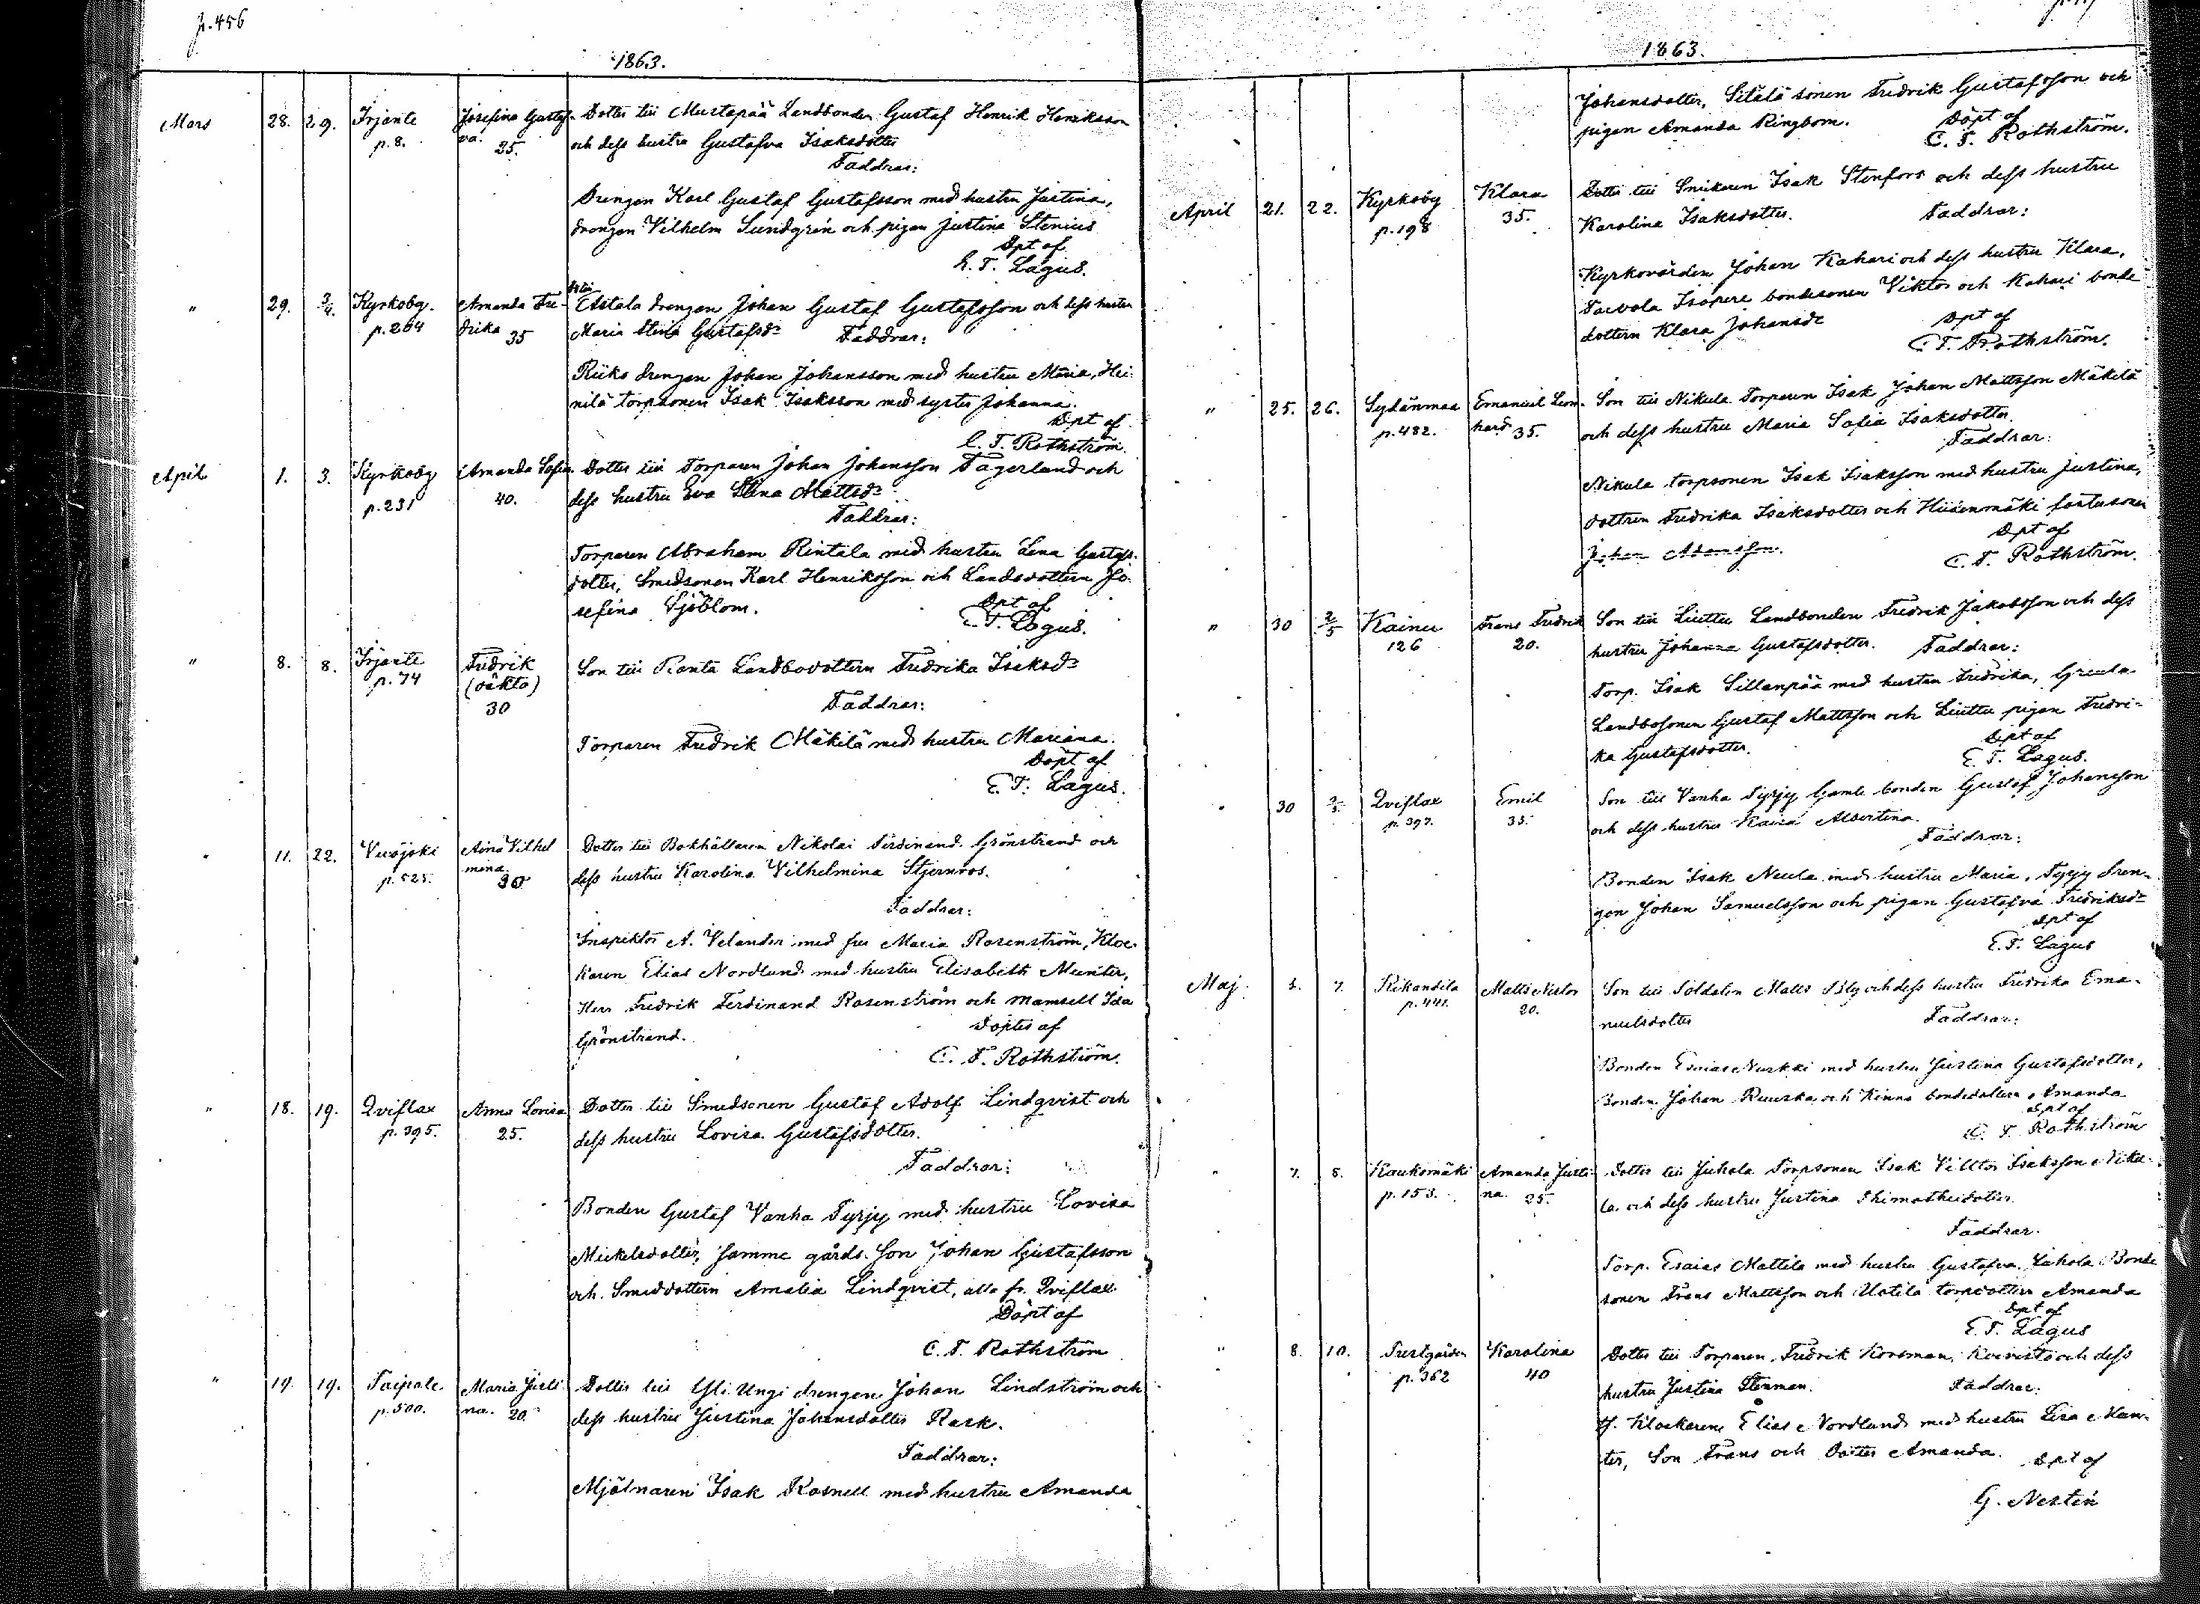 p. 456
1863.
Mars 28. 29. Irjante p. 8. Josefina Gustafva. 25.
Dotter till Mustapää Landbonden Gustaf Henrik Henriksson
och dess hustru Gustafva Isaksdotter
Faddrar:
Drengen Karl Gustaf Gustafsson med hustru Justina,
drengen Vilhelm Sundgrén och pigan Justina Stenius
Dpt af
E. T. Lagus.
" 29. 3/4. Kyrkoby. p. 264 Amanda Fredrika 35
Dotter till Astala drengen Johan Gustaf Gustafsson och dess hustru
Maria Stina Gustafsdr Faddrar:
Riiko drengen Johan Johansson med hustru Maria, Hei-
nilä torpsonen Isak Isaksson med syster Johanna.
Dpt af
C. T. Rothström.
April 1. 3. Kyrkoby p. 231 Amanda Sofia 40.
Dotter till Torparen Johan Johansson Fagerland och
dess hustru Eva Stina Mattsdr
Faddrar:
Torparen Abraham Rintala med hustru Lena Gustafs-
dotter, Smedsonen Karl Henriksson och Landsdottern Jo-
sefina Sjöblom. Dpt af
E. T. Lagus.
" 8. 8. Irjante p. 74 Fredrik (oäkta) 30
Son till Ranta Landbodottern Fredrika Isaksdr
Faddrar:
Torparen Fredrik Mäkilä med hustru Mariana.
Döpt af
E. T. Lagus.
" 11. 22. Vuojoki p. 525. Aina Vilhelmina 30
Dotter till Bokhållaren Nikolai Ferdinand Grönstrand och
dess hustru Karolina Vilhelmina Stjernvos.
Faddrar:
Inspektor A. Velander med fru Maria Rosenström, Kloc-
karen Elias Nordlund med hustru Elisabeth Munter,
Herr Fredrik Ferdinand Rosenström och mamsell Ida
Grönstrand. Döptes af
C. T. Rothström.
" 18. 19. Qviflax p. 395. Anna Lovisa 25.
Dotter till Smedsonen Gustaf Adolf Lindqvist och
dess hustru Lovisa Gustafsdotter.
Faddrar:
Bonden Gustaf Vanha Tyrjy med hustru Lovisa
Mickelsdotter, samme gårds Son Johan Gustafsson
och Smeddottern Amalia Lindqvist, alla fr. Qviflax.
Döpt af
C. T. Rothström
" 19. 19. Taipale p. 500. Maria Justina. 20.
Dotter till Yli Ungi drengen Johan Lindström och
dess hustru Justina Johansdotter Rask.
Faddrar:
Mjölnaren Isak Rosnell med hustru Amanda
1863.
Johansdotter, Sitälä sonen Fredrik Gustafsson och
pigan Amanda Ringbom. Döpt af
C. T. Rothström.
April 21. 22. Kyrkoby p. 198 Klara 35.
Dotter till Snickaren Isak Stenfors och dess hustru
Karolina Isaksdotter. Faddrar:
Kyrkovärden Johan Kahari och dess hustru Klara,
Isopere bondesonen Viktor och Kahari bonde
dottern Klara Johansdr Dpt af
C. T. Rothström.
" 25. 26. Sydänmaa p. 482. Emanuel Leonhard 35.
Son till Nikula Torparen Isak Johan Mattsson Mäkilä
och dess hustru Maria Sofia Isaksdotter.
Faddrar:
Nikula torpsonen Isak Isaksson med hustru Justina,
dottren Fredrika Isaksdotter och Hiisenmäki
Johan Adamsson. Dpt af
C. T. Rothström.
" 30 2/5 Kainu 126 Frans Fredrik 20.
Son till Liuttu Landbonden Fredrik Jakobsson och dess
hustru Johanna Gustafsdotter. Faddrar:
Torp. Isak Sillanpää med hustru Fredrika,
Landbosonen Gustaf Mattsson och Liuttu pigan Fredri-
ka Gustafsdotter. Dpt af
E. T. Lagus.
" 30 2/5 Qviflax p. 397. Emil 35.
Son till Vanha Tyrjy Gamle bonden Gustaf Johansson
och dess hustru Kaisa Albertina.
Faddrar:
Bonden Isak Neula med hustru Maria, Tyrjy dren-
gen Johan Samuelsson och pigan Gustafva Fredriksdr
Dpt af
E. T. Lagus
Maj 5. 7. Rikantila p. 441. Matts Nestor 20.
Son till Soldaten Matts Bly och dess hustru Fredrika Ema-
nuelsdotter Faddrar:
Bonden Esaias Nurkki med hustru Justina Gustafsdotter,
Bonden Johan Ruuska och Kinna bondedottern Amanda
Dpt af
C. T. Rothström
" 7. 8. Kaukomäki p. 153. Amanda Justina. 25.
Dotter till Juhola Torpsonen Isak Viktor Isaksson Niku-
la och dess hustru Justina Thimotheidotter.
Faddrar.
Torp. Esaias Mattila med hustru Gustafva, Juhola Bonde
sonen Frans Mattsson och Uotila torpdottern Amanda
Dpt af
E. T. Lagus
" 8. 10. Trestgården p. 362 Karolina 40
Dotter till Torparen Fredrik Korsman, Koivisto och dess
hustru Justina Stenman. Faddrar:
Klockaren Elias Nordlund med hustru Lisa Mun-
ter, Son Frans och Dotter Amanda. Dpt af
G. Nestén